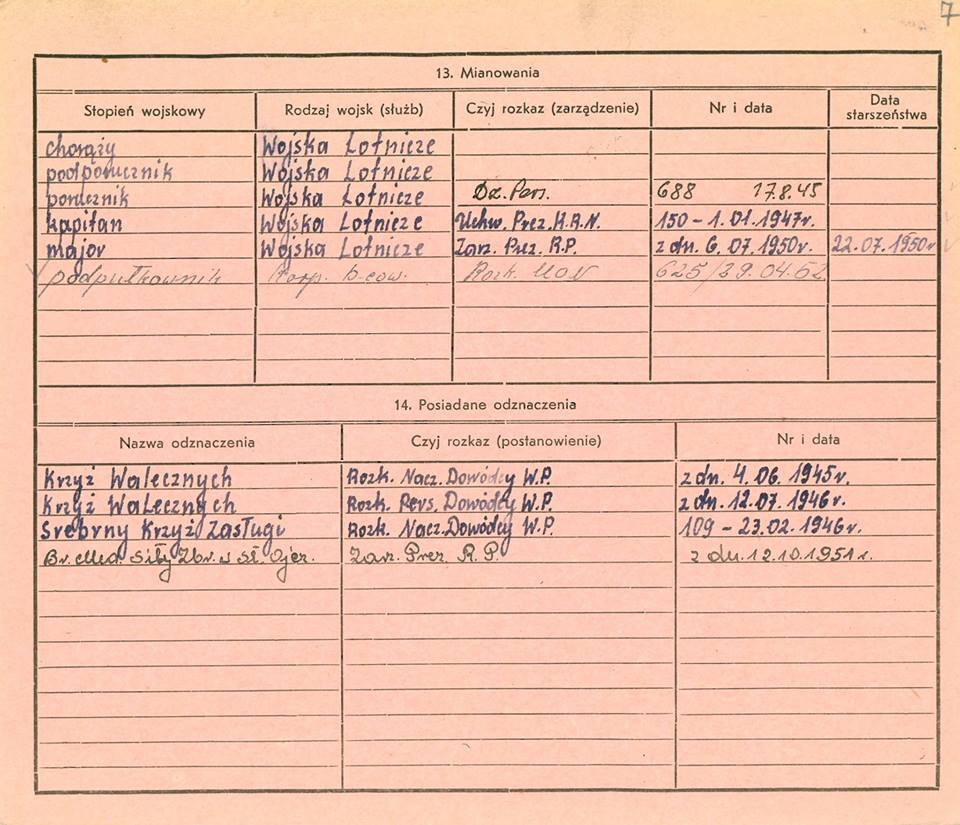 7
13. Mianowania
Stopień wojskowy Rodzaj wojsk (służb) Czyj rozkaz (zarządzenie) Nr i data Data starszeństwa
chorąży Wojska Lotnicze
podporucznik Wojska Lotnicze
porucznik Wojska Lotnicze Dz. Pers. 688 17.8.45
kapitan Wojska Lotnicze Uchw. Prez. K.R.N. 150 – 1.01.1947r.
major Wojska Lotnicze Zarz. Prez. R.P. z dn. 6.07.1950r. 22.07.1950r
podpułkownik Korp. Rozk. MON 625/29.04.52
14. Posiadane odznaczenia
Nazwa odznaczenia Czyj rozkaz (postanowienie) Nr i data
Krzyż Walecznych Rozk. Nacz. Dowódcy W.P. z dn. 4.06.1945r.
Krzyż Walecznych Rozk. Pers. Dowódcy W.P. z dn. 12.07.1946r.
Srebrny Krzyż Zasługi Rozk. Nacz. Dowódcy W.P. 109 – 23.02.1946r.
Br. Med. Siły Zbr. w Sł. Ojcz. Zarz. Prez. R.P. z dn. 12.10.1951r.